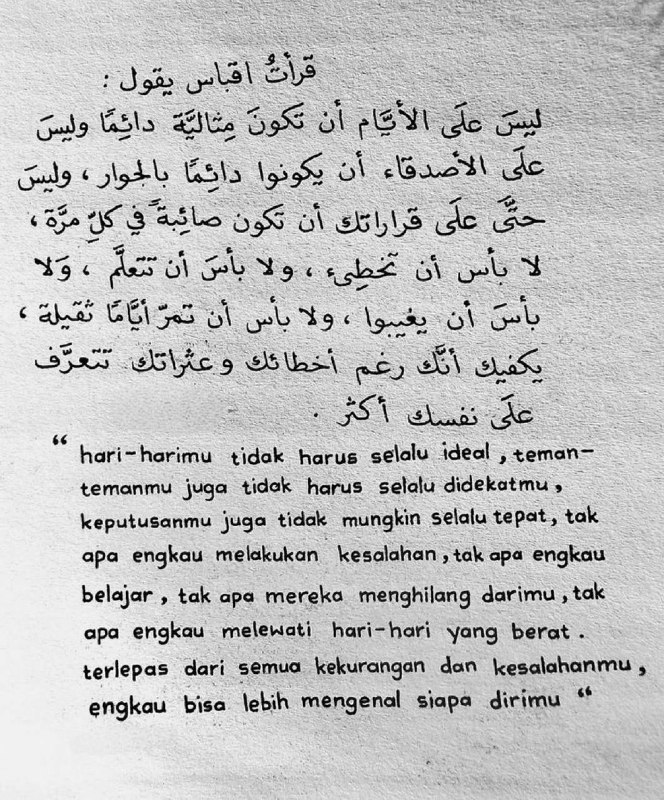 قرأتُ اقباس يقول :
ليسَ علَى الأيَّام أن تَكونَ مِثاليَّة دائِمًا وليسَ
علَى الأصدقاء أن يكونوا دائِمًا بالجوار ، وليسَ
حتَّى علَى قراراتك أن تكون صائِبةً في كلِّ مرَّة ،
لا بأس أن تخطِىء ، ولا بأسَ أن تتعلَّم ، وَلا
بأسَ أن يغيبوا ، ولا بأس أن تمرّ أيَّامًا ثقيلة ،
يكفيك أنَّك رغم أخطائك وعثراتك تتعرَّف
علَى نفسك أكثر .
“ hari-harimu tidak harus selalu ideal , teman-
temanmu juga tidak harus selalu didekatmu ,
keputusanmu juga tidak mungkin selalu tepat , tak
apa engkau melakukan kesalahan , tak apa engkau
belajar , tak apa mereka menghilang darimu , tak
apa engkau melewati hari-hari yang berat .
terlepas dari semua kekurangan dan kesalahanmu ,
engkau bisa lebih mengenal siapa dirimu “